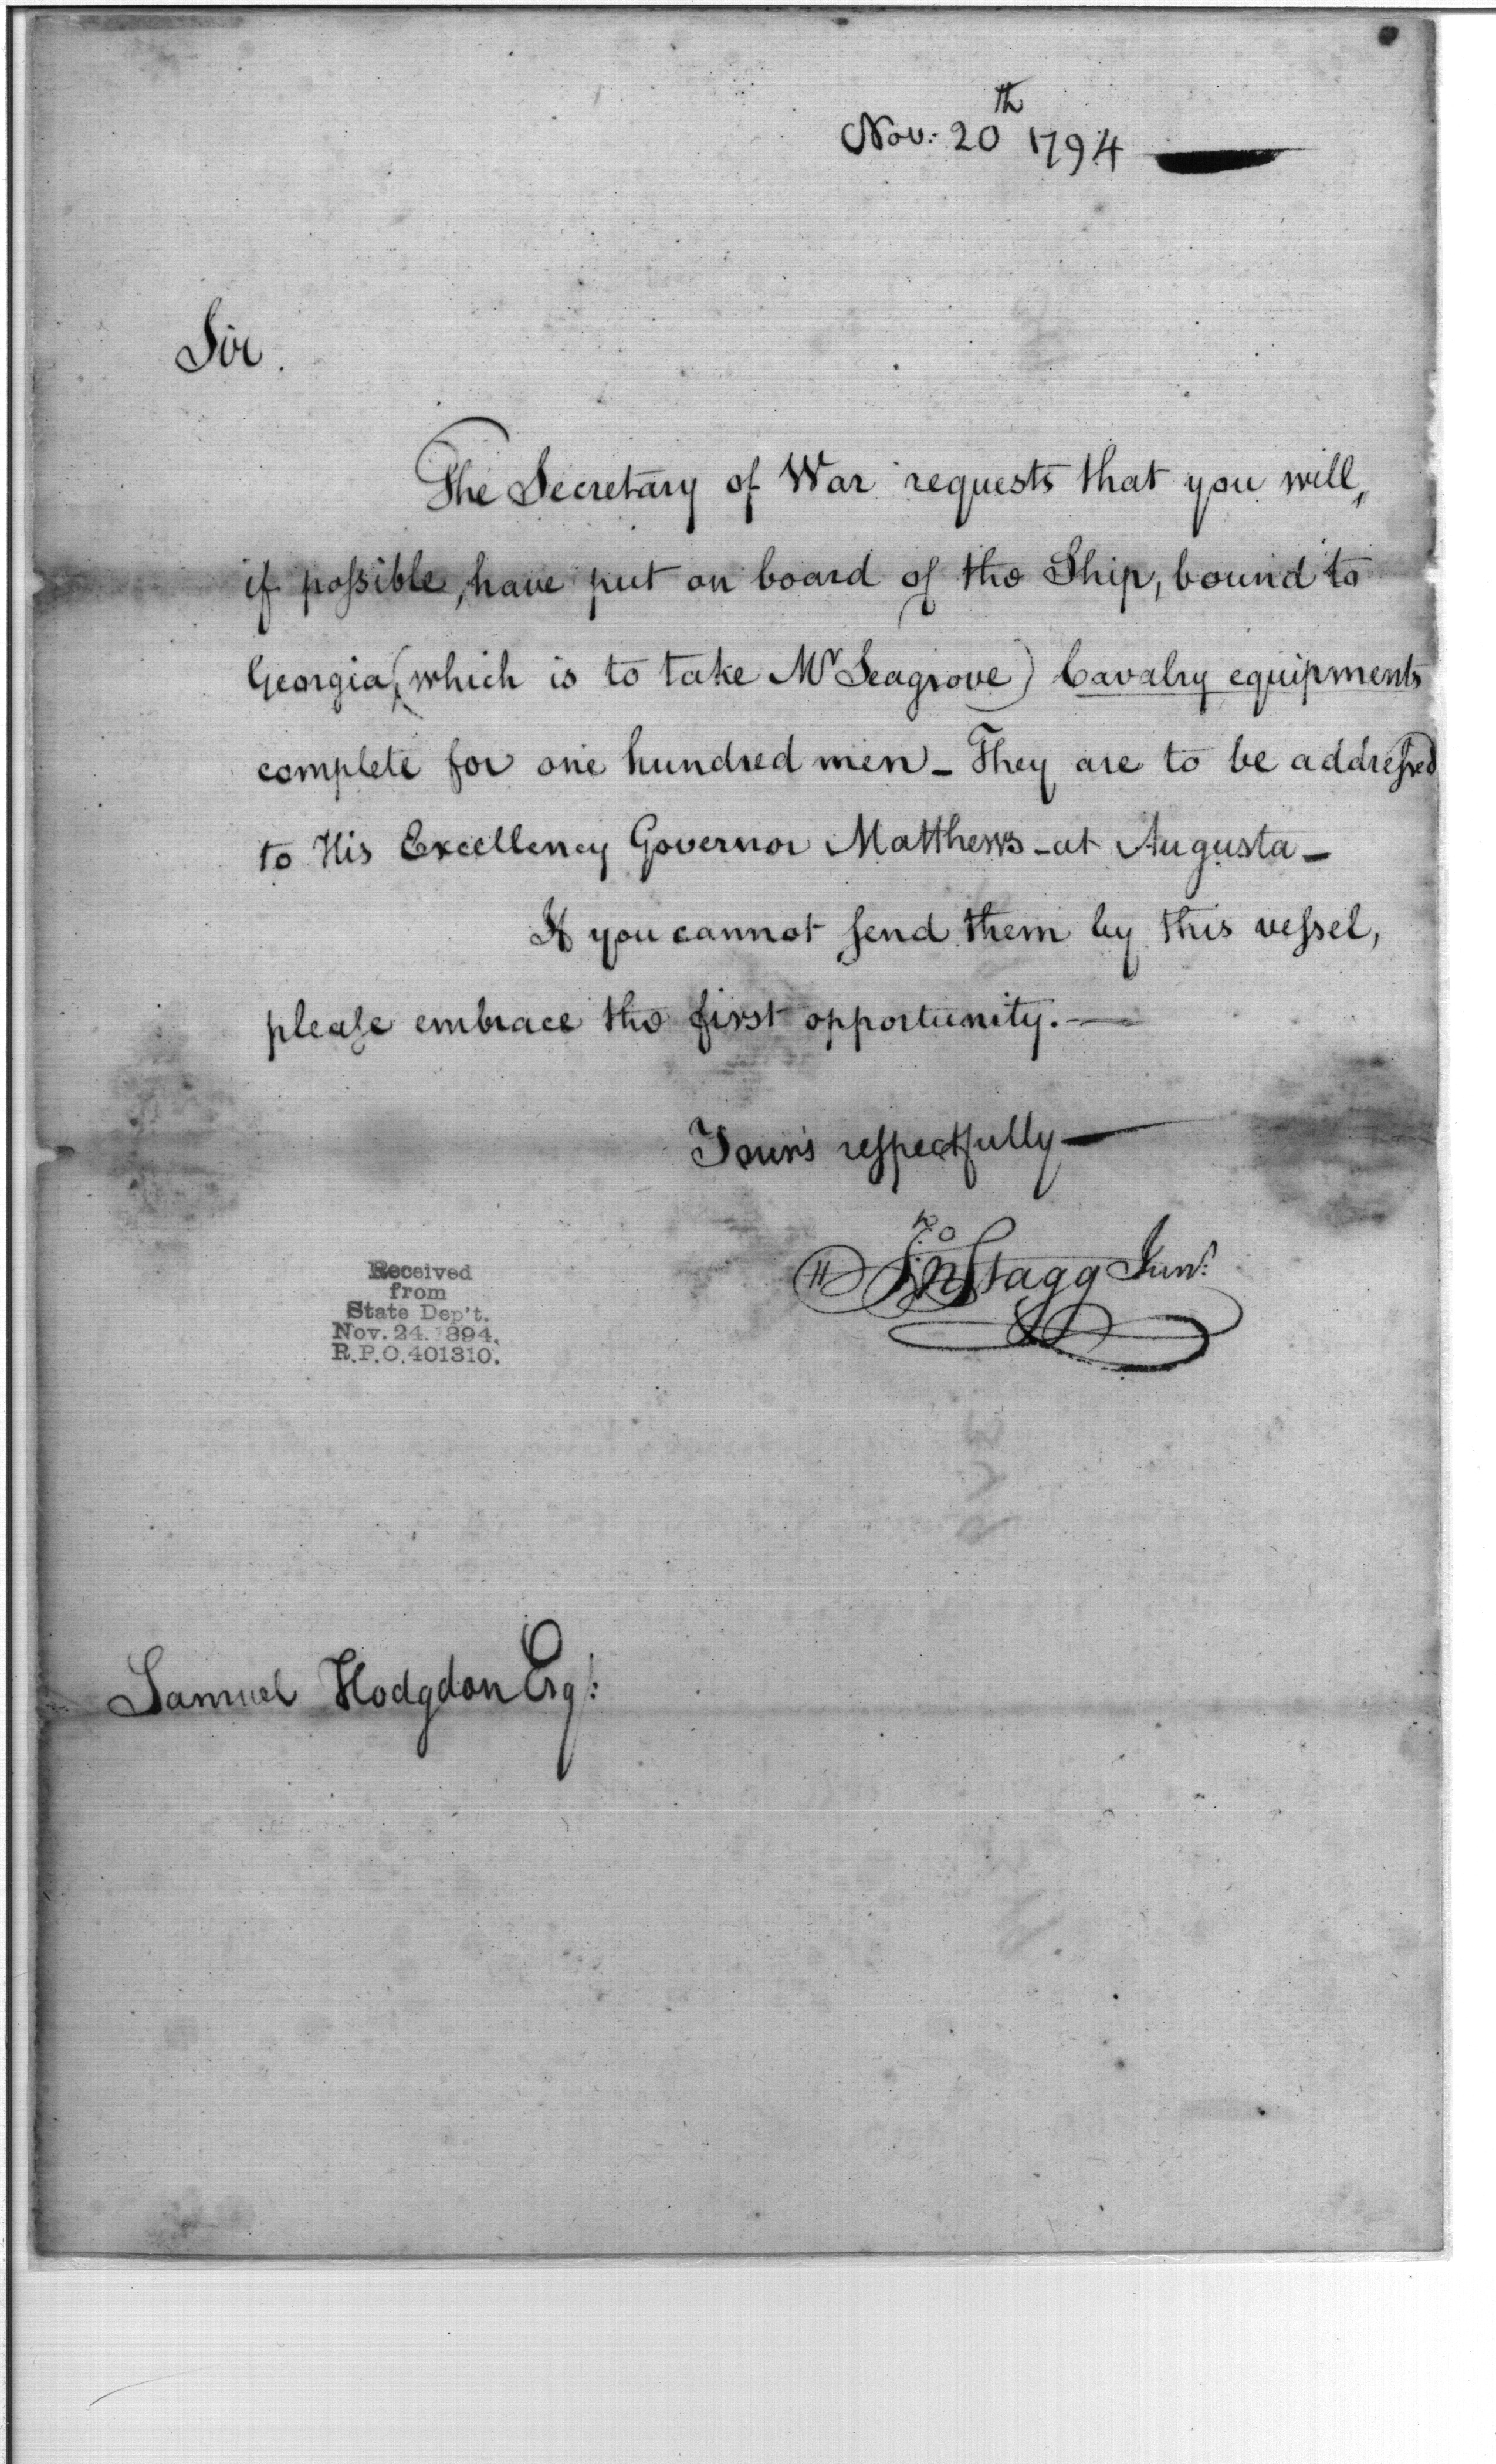 Nov: 20th 1794
Sir.
The Secretary of War requests that you will,
if poſsible, have put on board of the Ship, bound to
Georgia, (which is to take Mr Seagrove) Cavalry equipments
complete for one hundred men - They are to be addreſsed
to His Excellency Governor Matthews - at Augusta -
If you cannot ſend them by this veſsel,
pleaſe embrace the first opportunity. -
Your's reſpectfully
Jno Stagg Junr:
Received
from
State Dep't.
Nov. 24. 1894.
R.P.O. 401310.
Samuel Hodgdon Esqr: